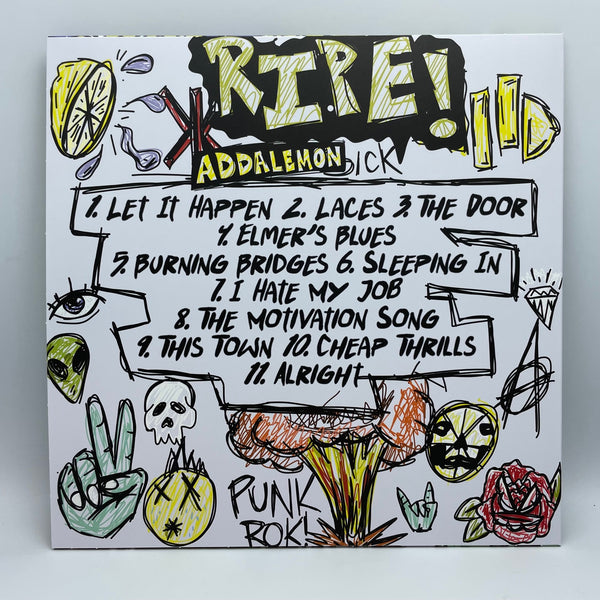 R.I.P.E!
ADDALEMON SICK
1. LET IT HAPPEN 2. LACES 3. THE DOOR
4. ELMER'S BLUES
5. BURNING BRIDGES 6. SLEEPING IN
7. I HATE MY JOB
8. THE MOTIVATION SONG
9. THIS TOWN 10. CHEAP THRILLS
11. ALRIGHT
PUNK
ROK!